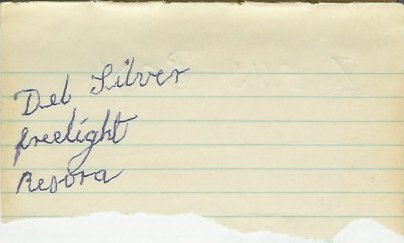 Del Silver
freelight
Resora